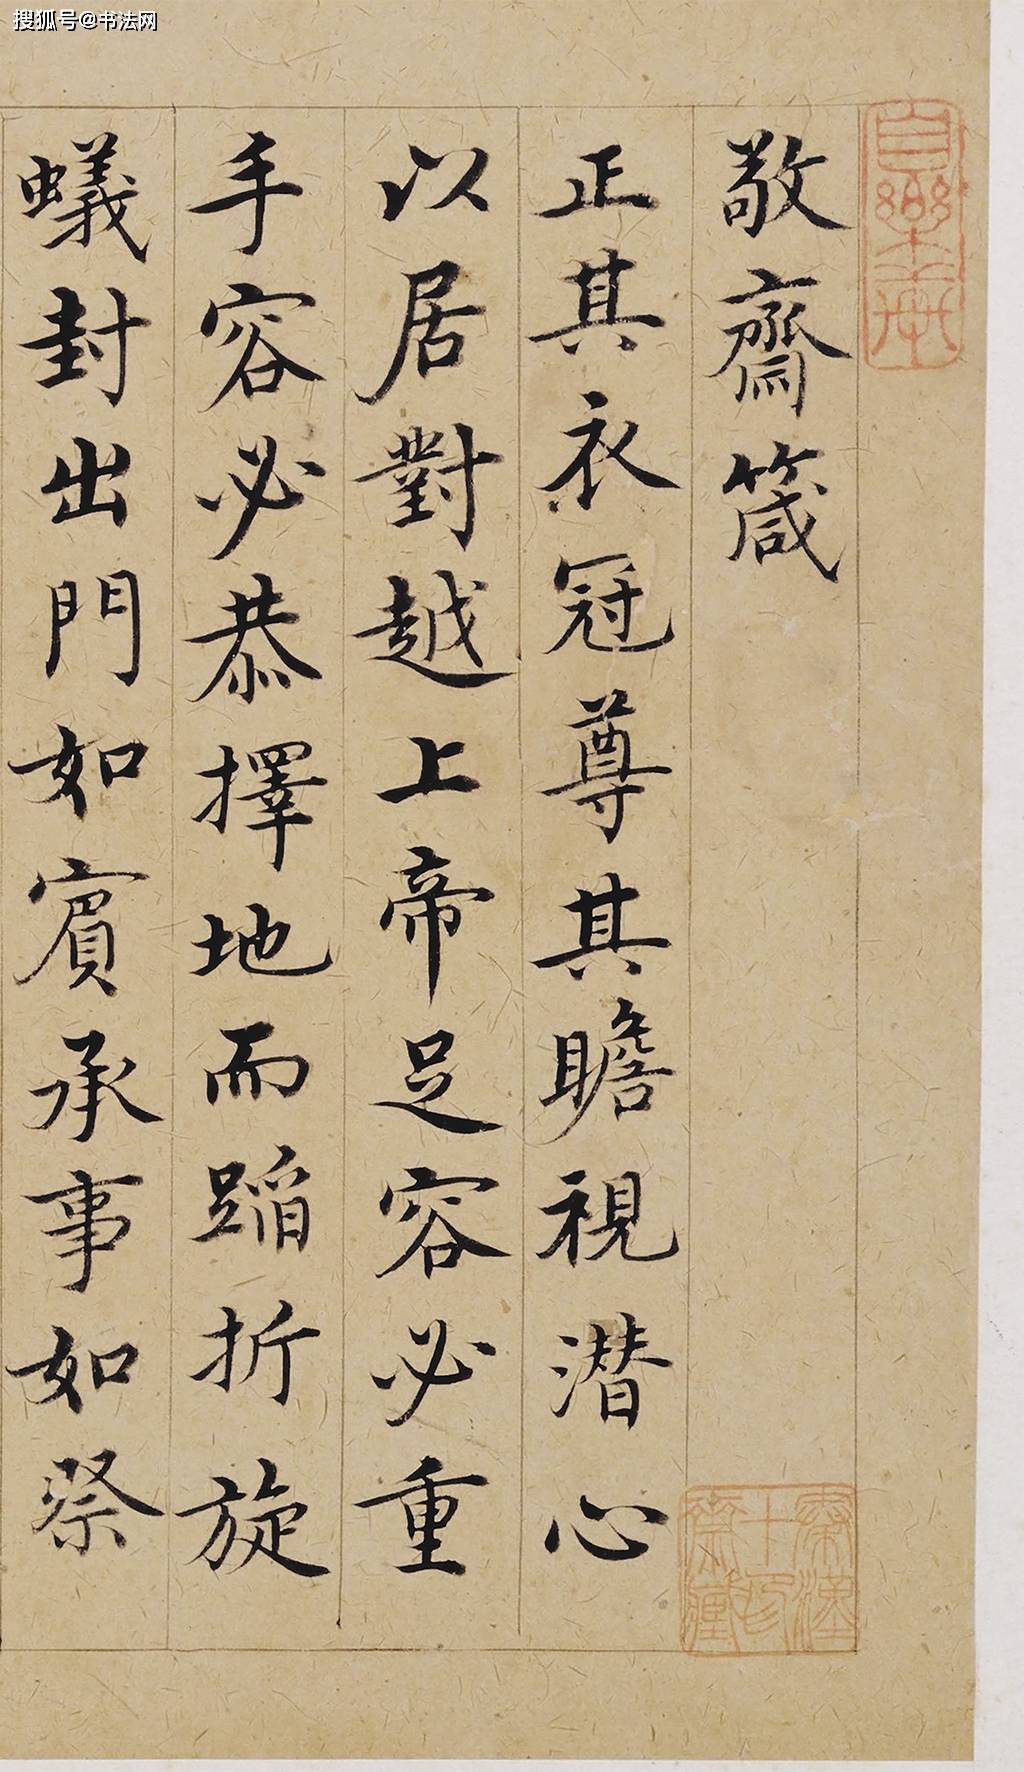 搜狐号@书法网
敬齋箴
正其衣冠尊其瞻視潜心
以居對越上帝足容必重
手容必恭擇地而蹈折旋
蟻封出門如賓承事如祭